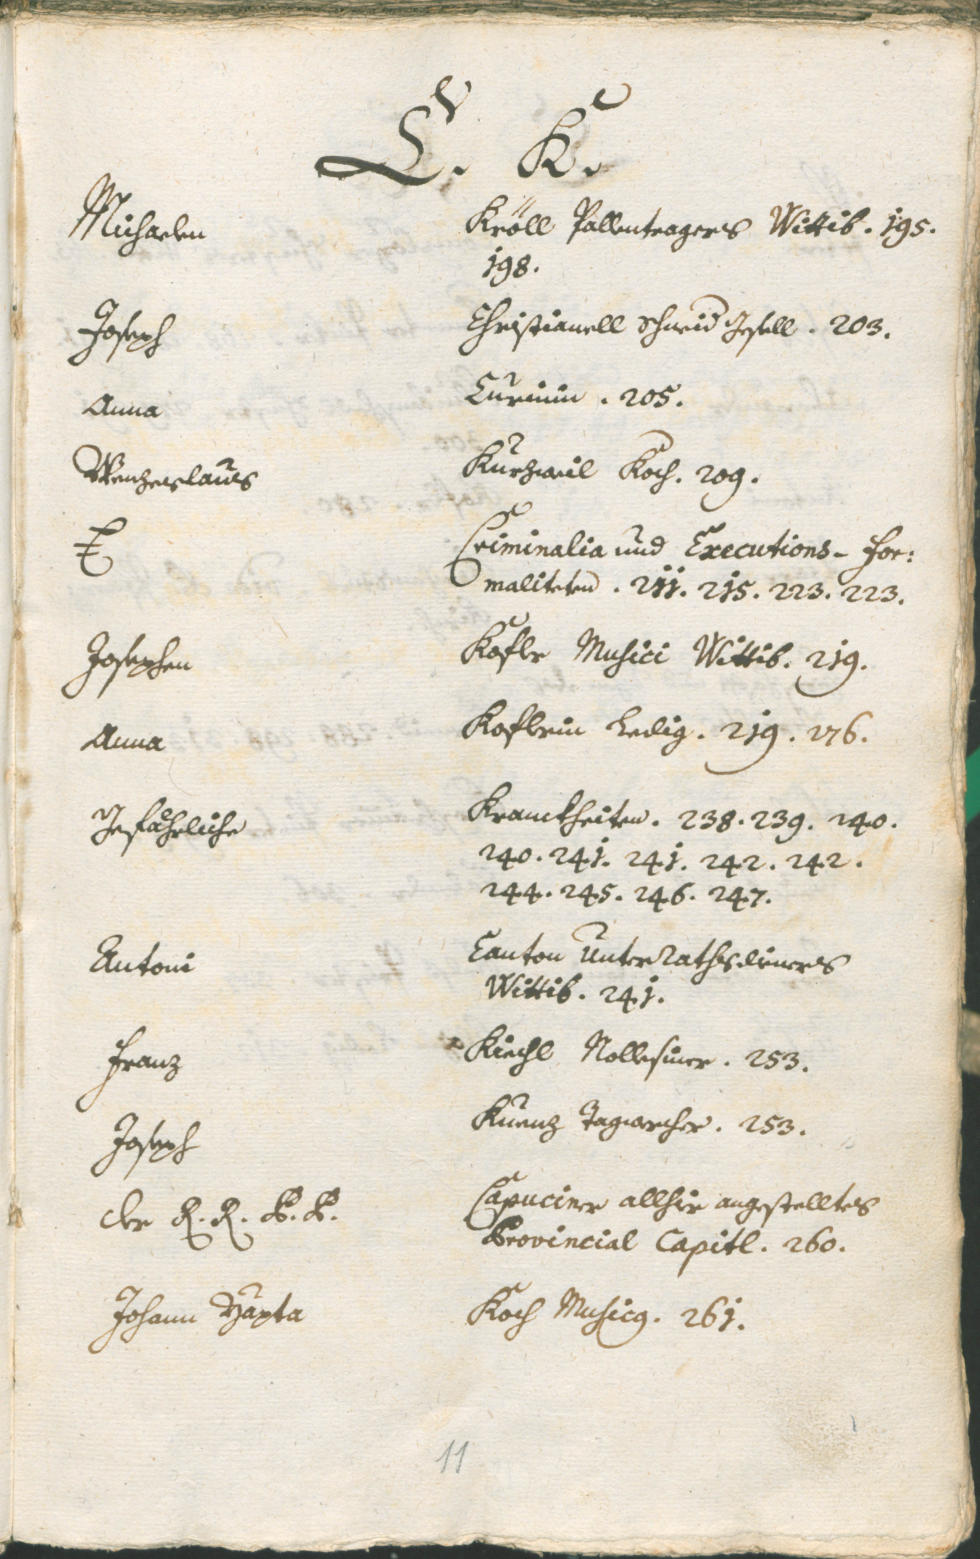 C. K.
Michaelen Kröll Pallentragers Wittib. 195.
198.
Joseph Christianell Schneid Gesell. 203.
Anna Curinin. 205.
Wenzeslaus Kurzweil Koch. 209.
Criminalia und Executions- For:
maliteten. 211. 215. 223. 223.
Josephen Kofler Musici Wittib. 219.
Anna Koflerin Ledig. 219. 276.
Gefährliche Kranckheiten. 238. 239. 240.
240. 241. 241. 242. 242.
244. 245. 246. 247.
Antoni Canton Unter Rathsdieners
Wittib. 241.
Franz Kiechl. 253.
Joseph Kuenz Tagwercher. 253.
der R. R. P. P. Capuciner allhier angestelltes
Provincial Capitl. 260.
Johann Bapta Koch Musicg. 261.
11